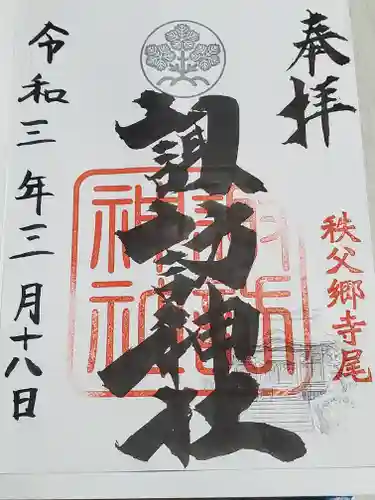 奉拝
秩父郷寺尾
諏訪神社
諏訪神社
令和三年三月十八日